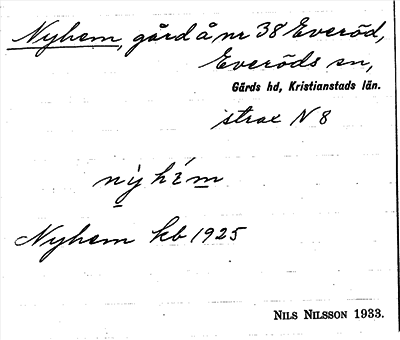 Nyhem, gård å nr 38 Everöd,
Everöds sn,
Gärds hd, Kristianstads län.
strax N 8
nỳhém
Nyhem kb 1925
NILS NILSSON 1933.